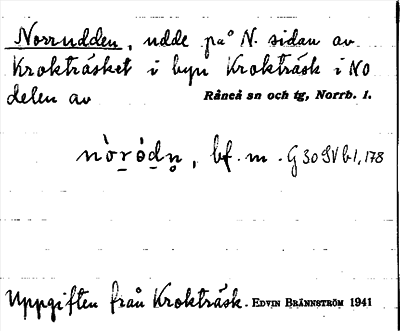 Norrudden, udde på N. sidan av
Krokträsket i byn Krokträsk i NO
delen av Råneå sn och tg, Norrb. l.
nòró̱dn̥, bf. m. G 30 SV b 1, 178
Uppgiften från Krokträsk. EDVIN BRÄNNSTRÖM 1941